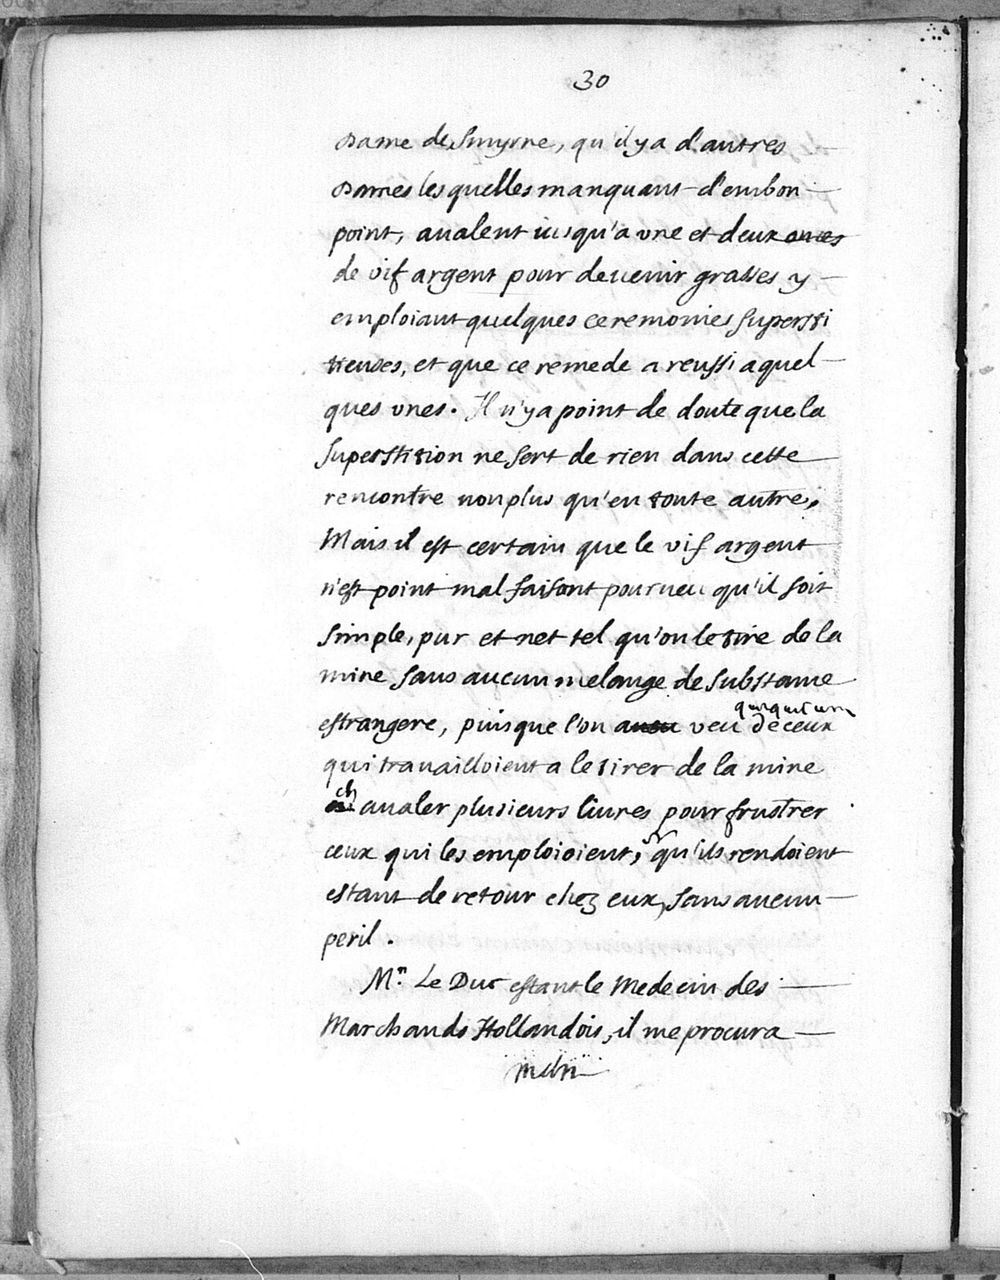 30
Dame de Smyrne, qu'il y a d'autres
Dames lesquelles manquant d'embon
point, aualent iusqu'a vne et deux onces
de vif argent pour deuenir grasses y
emploiant quelques ceremonies supersti
tieuses, et que ce remede a reussi a quel
ques vnes. Il n'y a point de doute que la
superstition ne sert de rien dans cette
rencontre non plus qu'en toute autre,
Mais il est certain que le vif argent
n'est point mal faisant pourueu qu'il soit
simple, pur et net tel qu'on le tire de la
mine sans aucun melange de substance
estrangere, puisque l'on veu de ceux
qui trauailloient a le tirer de la mine
aualer plusieurs liures pour frustrer
ceux qui les emploioient, qu'ils rendoient
estant de retour chez eux, sans aucun
peril.
Mr. Le Duc estant le Medecin des
Marchands Hollandois, il me procura